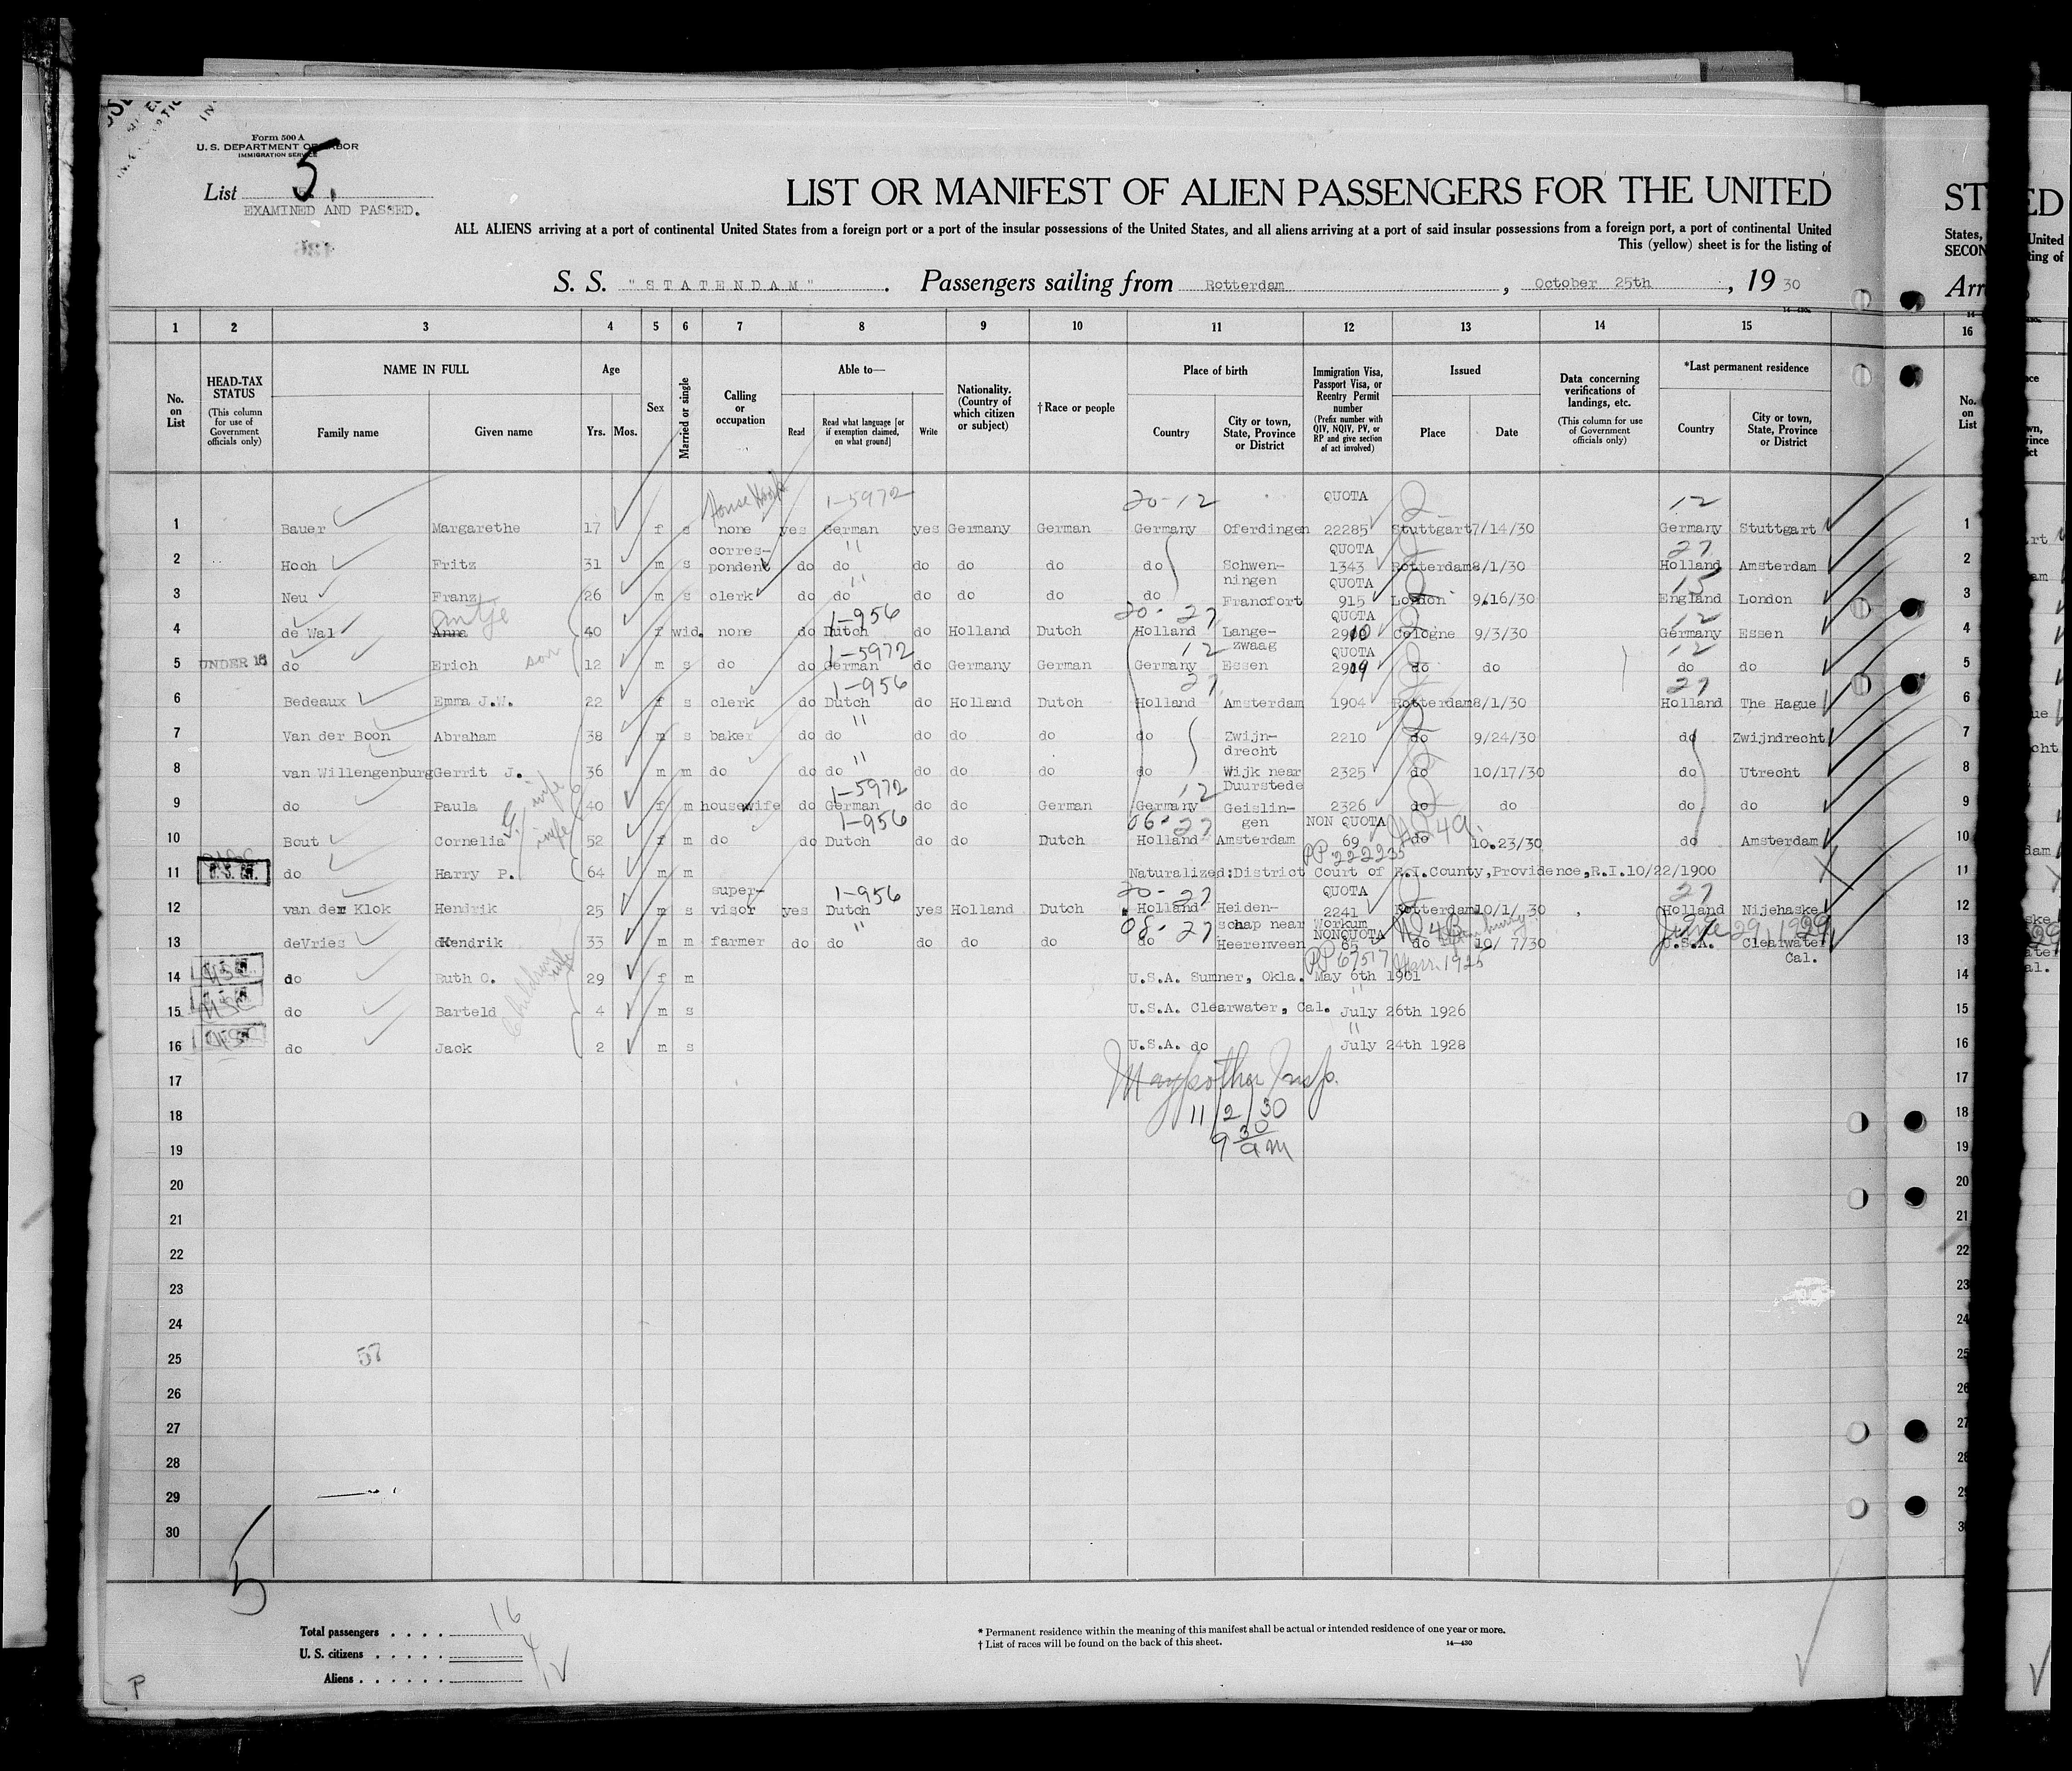 Form 500 A
U. S. DEPARTMENT OF LABOR
IMMIGRATION SERVICE
List 5.
EXAMINED AND PASSED.
LIST OR MANIFEST OF ALIEN PASSENGERS FOR THE UNITED
ALL ALIENS arriving at a port of continental United States from a foreign port or a port of the insular possessions of the United States, and all aliens arriving at a port of said insular possessions from a foreign port, a port of continental United
This (yellow) sheet is for the listing of
S. S. "STATENDAM". Passengers sailing from Rotterdam, October 25th, 19 30
1 2 3 4 5 6 7 8 9 10 11 12 13 14 15
No. on List
HEAD-TAX STATUS (This column for use of Government officials only)
NAME IN FULL
Family name Given name
Age
Yrs. Mos.
Sex
Married or single
Calling or occupation
Able to—
Read
Read what language [or if exemption claimed, on what ground]
Write
Nationality. (Country of which citizen or subject)
† Race or people
Place of birth
Country
City or town, State, Province or District
Immigration Visa, Passport Visa, or Reentry Permit number (Prefix number with QIV, NQIV, PV, or RP and give section of act involved)
Issued
Place Date
Data concerning verifications of landings, etc. (This column for use of Government officials only)
*Last permanent residence
Country
City or town, State, Province or District
House Work 1-5972 20-12 QUOTA 12
1 Bauer Margarethe 17 f s none yes German yes Germany German Germany Oferdingen 22285 Stuttgart 7/14/30 Germany Stuttgart
corres- " QUOTA 27
2 Hoch Fritz 31 m s pondent do do do do do do Schwen- 1343 Rotterdam 8/1/30 Holland Amsterdam
" ningen QUOTA 15
3 Neu Franz 26 m s clerk do do do do do do Francfort 915 London 9.16/30 England London
Antje 1-956 20-27 QUOTA 12
4 de Wal Anna 40 f wid. none do Dutch do Holland Dutch Holland Lange- 2910 Cologne 9/3/30 Germany Essen
1-5972 12 zwaag QUOTA 12
5 UNDER 16 do Erich son 12 m s do do German do Germany German Germany Essen 2909 do do do do
1-956 27 27
6 Bedeaux Emma J.W. 22 f s clerk do Dutch do Holland Dutch Holland Amsterdam 1904 Rotterdam 8/1/30 Holland The Hague
"
7 Van der Boon Abraham 38 m s baker do do do do do do Zwijn- 2210 do 9/24/30 do Zwijndrecht
" drecht
8 van Willengenburg Gerrit J. 36 m m do do do do do do do Wijk near 2325 do 10/17/30 do Utrecht
wife 1-5972 12 Duurstede
9 do Paula 40 f m housewife do German do do German Germany Geislin- 2326 do do do do
wife 1-956 06-27 gen NON QUOTA 4D49
10 Bout Cornelia G. 52 f m do do Dutch do do Dutch Holland Amsterdam 69 do 10.23/30 do Amsterdam
PP 222235
11 do Harry P. 64 m m Naturalized: District Court of R.I.County, Providence, R.I.10/22/1900
super- 1-956 20-27 QUOTA 27
12 van der Klok Hendrik 25 m s visor yes Dutch yes Holland Dutch Holland Heiden- 2241 Rotterdam 10/1/ 30 Holland Nijehaske
" 08-27 schap near Workum NONQUOTA June 29, 1929
13 deVries Hendrik 33 m m farmer do do do do do do Heerenveen 65 do 10/ 7/30 U.S.A. Clearwater
PP 67517 Marr. 1925 Cal.
14 USC do Ruth O. wife 29 f m U.S.A. Sumner, Okla. May 6th 1901
"
15 USC do Barteld Children 4 m s U.S.A. Clearwater, Cal. July 26th 1926
"
16 USC do Jack 2 m s U.S.A. do July 24th 1928
17
Insp.
18
11/2/30
19
9 30 am
20
21
22
23
24
25
57
26
27
28
29
30
5
Total passengers 16
U. S. citizens 4
Aliens 12
P
* Permanent residence within the meaning of this manifest shall be actual or intended residence of one year or more.
† List of races will be found on the back of this sheet.
14—430
ST
States,
SECON
Arr
16
No. on List
1
2
3
4
5
6
7
8
9
10
11
12
13
14
15
16
17
18
19
20
21
22
23
24
25
26
27
28
ED
United
ting of